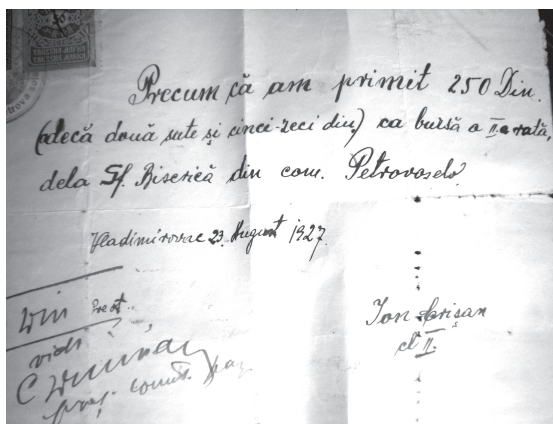 Precum că am primit 250 Din.
(adecă două sute și cinci-zeci din.) ca bursă a II-a rată,
dela Sf. Biserică din com. Petrovoselo
Vladimirovac 23. August 1927.
Ion Crișan
cl II.
vidi